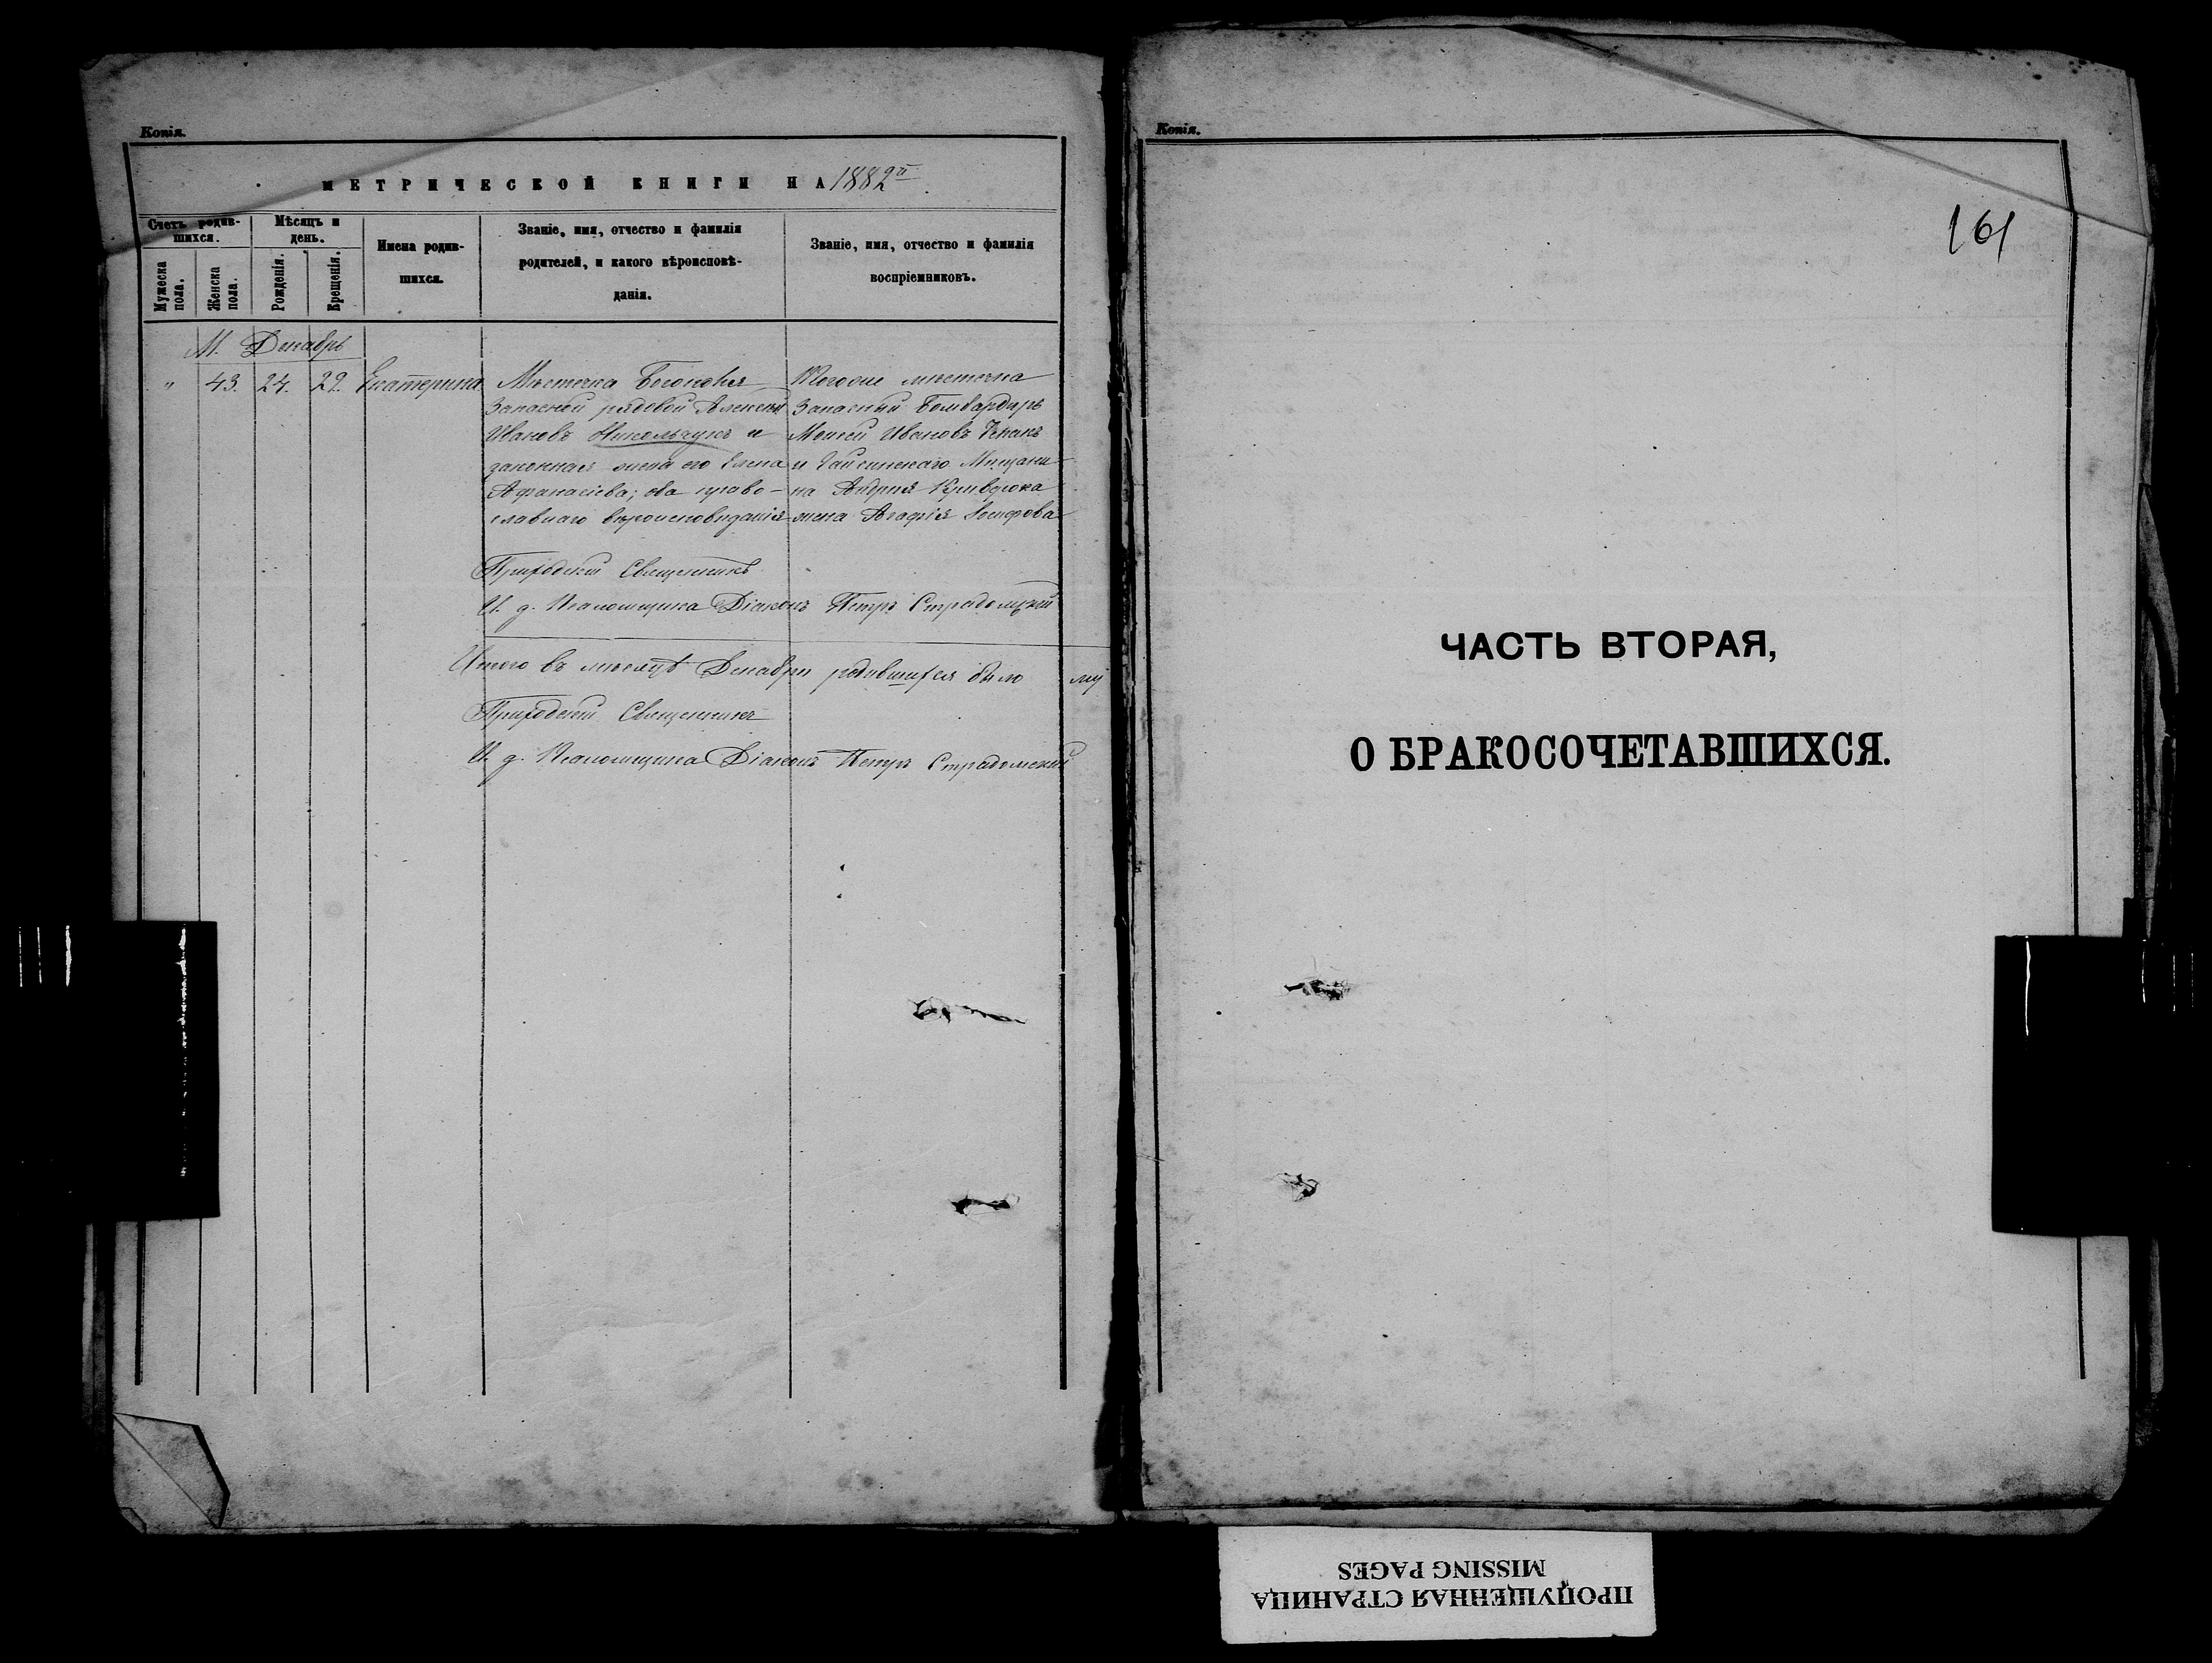 Копія.
МЕТРИЧЕСКОЙ КНИГИ НА 1882й
Счетъ родив-
шихся.
Мѣсяцъ и
день.
Имена родив-
шихся.
Званіе, имя, отчество и фамилія
родителей, и какого вѣроисповѣ-
данія.
Званіе, имя, отчество и фамилія
воспріемниковъ.
Мужеска
пола.
Женска
пола.
Рожденія.
Крещенія.
М. Декабрь
" 43. 24. 29. Екатерина
Мѣстечка
Запасной рядовой Алексѣй
Ивановъ Никольчукъ и
законная жена его Елена
Афанасіева; оба право-
славнаго вѣроисповѣданія
Тогоже мѣстечка
Запасный Бомбардиръ
Ивановъ
и Гайсинскаго Мѣщани-
на Андрея
жена Агафія Іосифова
Приходскій Священникъ
И. д. Псаломщика Діаконъ Петръ Страдомскій
Итого въ мѣсяцѣ Декабрѣ родившихся было му
Приходскій Священникъ
И. д. Псаломщика Діаконъ Петръ Страдомскій
Копія.
161
ЧАСТЬ ВТОРАЯ,
О БРАКОСОЧЕТАВШИХСЯ.
ПРОПУЩЕННАЯ СТРАНИЦА
MISSING PAGES